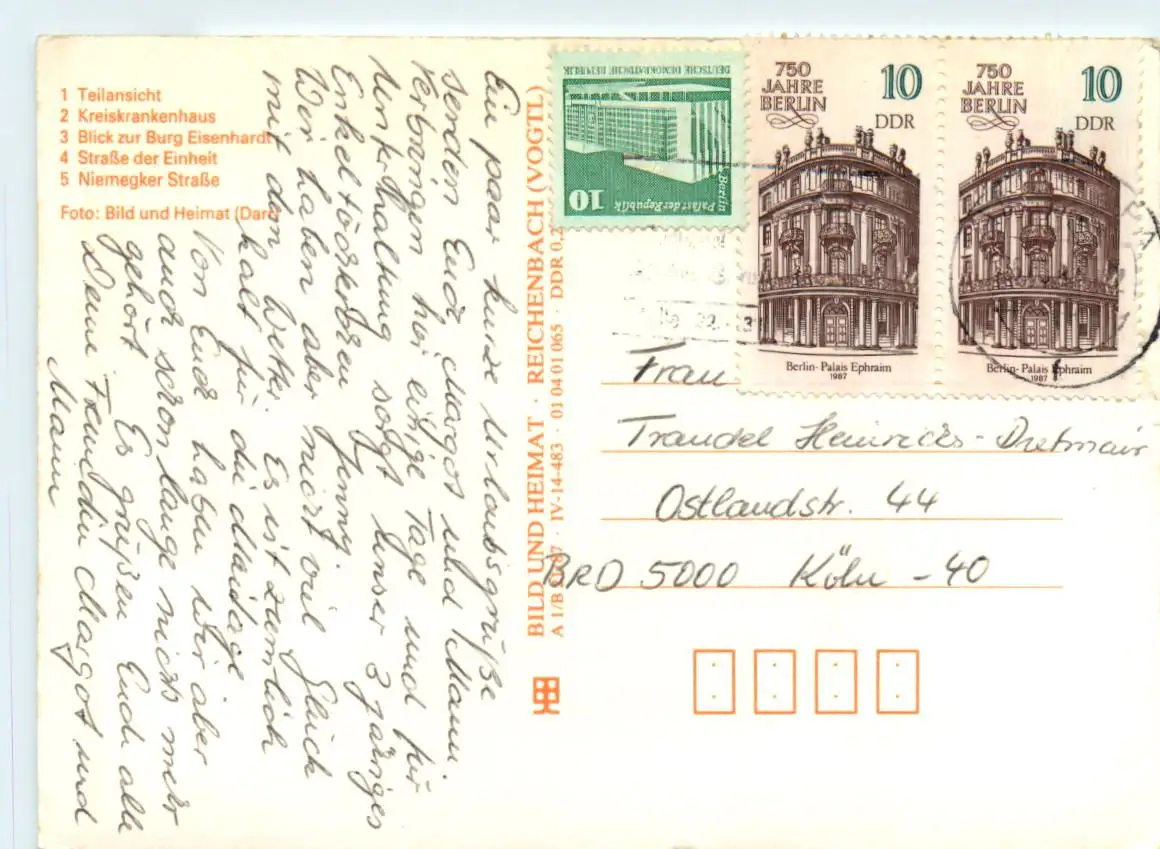 1 Teilansicht
2 Kreiskrankenhaus
3 Blick zur Burg Eisenhardt
4 Straße der Einheit
5 Niemegker Straße
Foto: Bild und Heimat (Darr
Ein paar kurze Urlaubsgrüße
senden Euch Margot und Mann.
Verbringen hier einige Tage und für
Unterhaltung sorgt unser 3 järiges
Enkeltöchterchen Jenny.
Wir haben aber nicht viel Glück
mit dem Wetter. Es ist ziemlich
kalt für die Maitage.
Von Euch haben wir aber
auch schon lange nichts mehr
gehört. Es grüßen Euch alle
Deine Freundin Margot und
Mann
BILD UND HEIMAT · REICHENBACH (VOGTL)
A 1/B 87 · IV-14-483 · 01 04 01 065 · DDR 0,2
DEUTSCHE DEMOKRATISCHE REPUBLIK
Palast der Republik
Berlin
10
750
JAHRE
BERLIN
10
DDR
Berlin-Palais Ephraim
1987
750
JAHRE
BERLIN
10
DDR
Berlin-Palais Ephraim
1987
Frau
Traudel Heinrichs-Dietmair
Ostlandstr. 44
BRD 5000 Köln -40